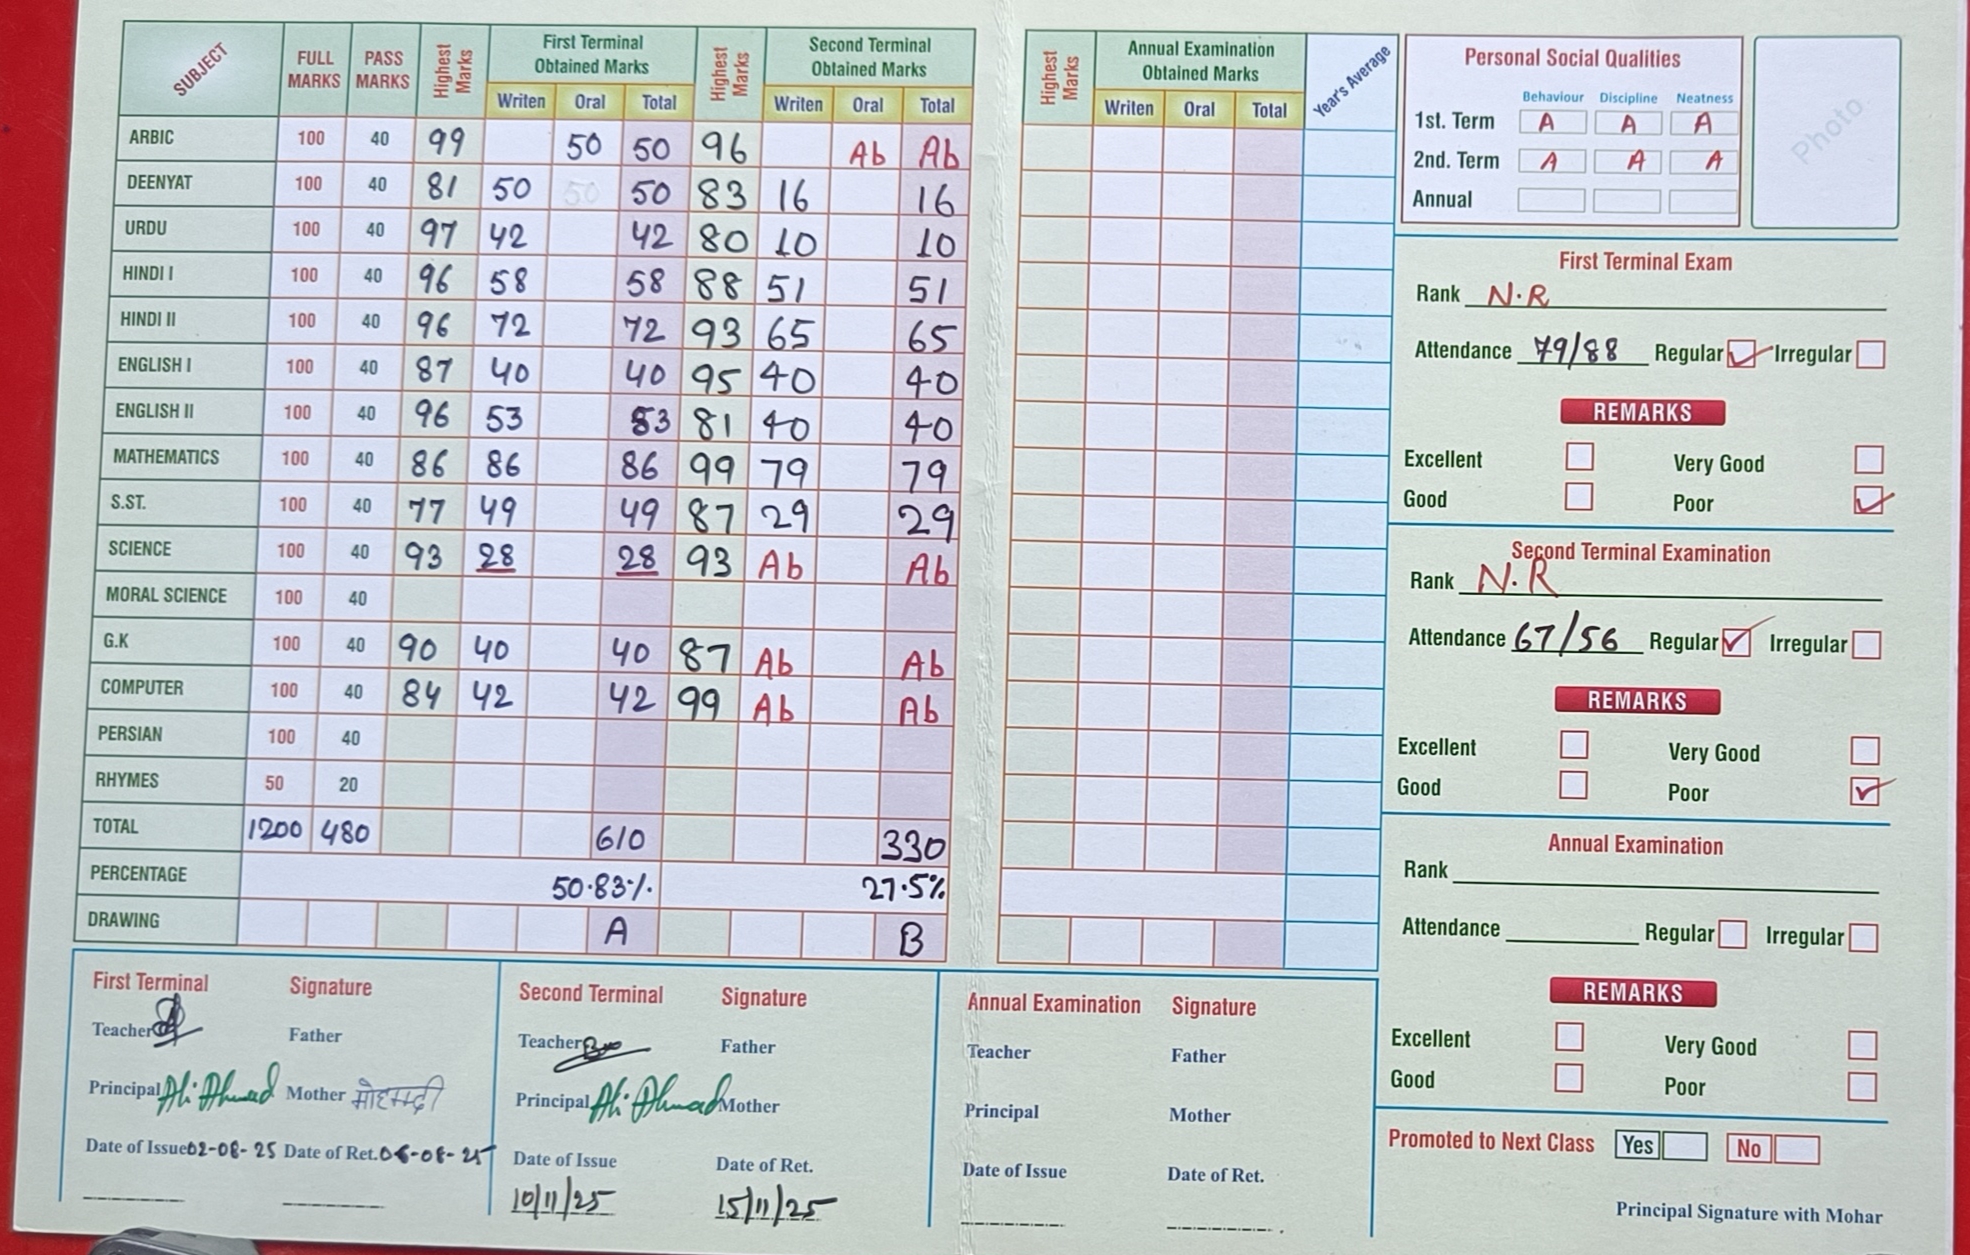 SUBJECT FULL MARKS PASS MARKS Highest Marks First Terminal Obtained Marks Highest Marks Second Terminal Obtained Marks
Writen Oral Total Writen Oral Total
ARBIC 100 40 99 50 50 96 Ab Ab
DEENYAT 100 40 81 50 50 50 83 16 16
URDU 100 40 97 42 42 80 10 10
HINDI I 100 40 96 58 58 88 51 51
HINDI II 100 40 96 72 72 93 65 65
ENGLISH I 100 40 87 40 40 95 40 40
ENGLISH II 100 40 96 53 53 81 40 40
MATHEMATICS 100 40 86 86 86 99 79 79
S.ST. 100 40 77 49 49 87 29 29
SCIENCE 100 40 93 28 28 93 Ab Ab
MORAL SCIENCE 100 40
G.K 100 40 90 40 40 87 Ab Ab
COMPUTER 100 40 84 42 42 99 Ab Ab
PERSIAN 100 40
RHYMES 50 20
TOTAL 1200 480 610 330
PERCENTAGE 50.83% 27.5%
DRAWING A B
Highest Marks Annual Examination Obtained Marks Year's Average
Writen Oral Total
Personal Social Qualities
Behaviour Discipline Neatness
1st. Term A A A
2nd. Term A A A
Annual
Photo
First Terminal Exam
Rank N.R
Attendance 79/88 Regular Irregular
REMARKS
Excellent Very Good
Good Poor
Second Terminal Examination
Rank N.R
Attendance 67/56 Regular Irregular
REMARKS
Excellent Very Good
Good Poor
Annual Examination
Rank
Attendance Regular Irregular
REMARKS
Excellent Very Good
Good Poor
Promoted to Next Class Yes No
Principal Signature with Mohar
First Terminal Signature
Teacher Father
Principal Ali Ahmad Mother
Date of Issue 02-08-25 Date of Ret. 06-08-25
Second Terminal Signature
Teacher Father
Principal Ali Ahmad Mother
Date of Issue Date of Ret.
10/11/25 15/11/25
Annual Examination Signature
Teacher Father
Principal Mother
Date of Issue Date of Ret.